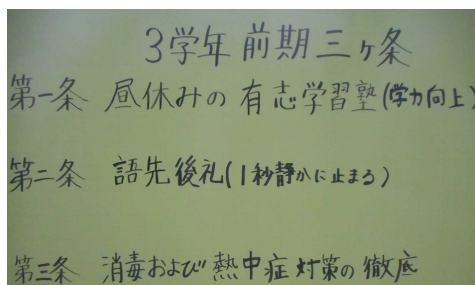 3学年 前期 三ヶ条
第一条 昼休みの 有志学習塾(学力向上)
第二条 語先後礼(1秒静かに止まる)
第三条 消毒および 熱中症 対策の 徹底